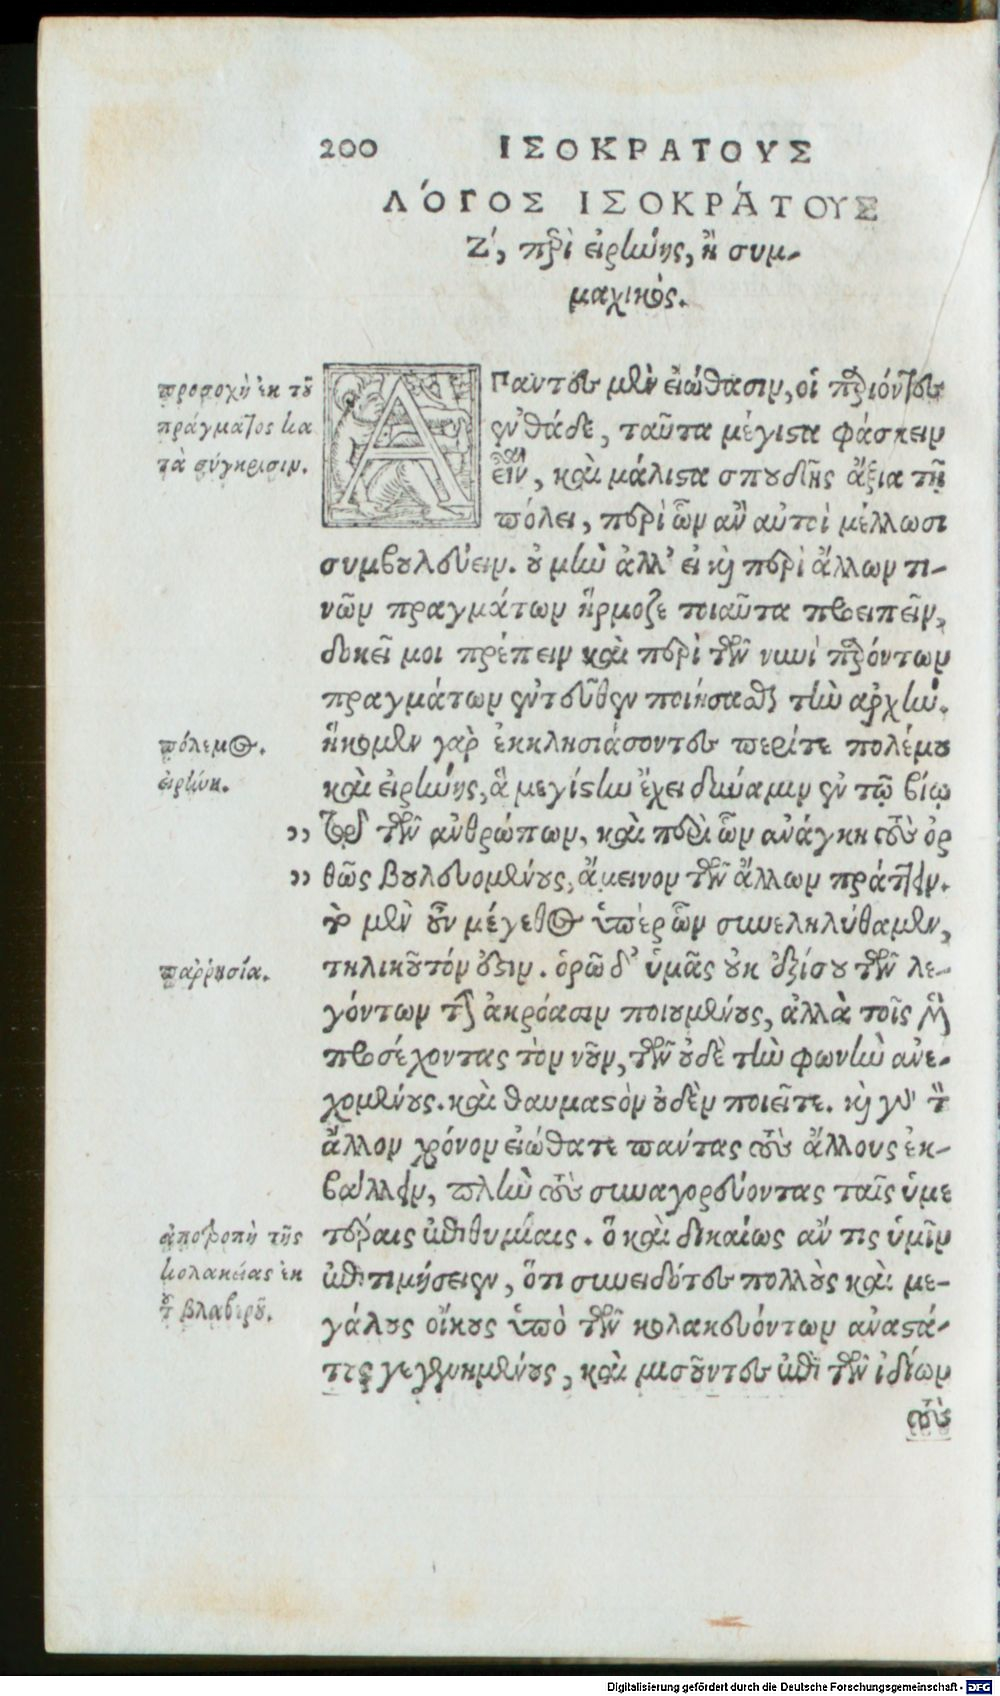 200 ΙΣΟΚΡΑΤΟΥΣ
ΛΌΓΟΣ ΙΣΟΚΡΆΤΟΥΣ
Ζ΄, περὶ εἰρήνης, ἢ συμ-
μαχικός.
προσοχὴ ἐκ τοῦ
πράγματος κα
τὰ σύγκρισιν.
ΑΠαντες μὲν εἰώθασιν, οἱ παριόντες
ἐνθάδε, ταῦτα μέγιστα φάσκειν
εἶναι, καὶ μάλιστα σπουδῆς ἄξια τῇ
πόλει, περὶ ὧν ἂν αὐτοὶ μέλλωσι
συμβουλεύειν. οὐ μὴν ἀλλ' εἰ καὶ περὶ ἄλλων τι-
νῶν πραγμάτων ἥρμοζε τοιαῦτα προειπεῖν,
δοκεῖ μοι πρέπειν καὶ περὶ τῶν νυνὶ παρόντων
πραγμάτων ἐντεῦθεν ποιήσασθαι τὴν ἀρχήν.
πόλεμος.
εἰρήνη.
ἥκομεν γὰρ ἐκκλησιάσοντες περίτε πολέμου
καὶ εἰρήνης, ἃ μεγίστην ἔχει δύναμιν ἐν τῷ βίῳ
„ τῷ τῶν ἀνθρώπων, καὶ περὶ ὧν ἀνάγκη τοὺς ὀρ
„ θῶς βουλευομένους, ἄμεινον τῶν ἄλλων πράττειν.
τὸ μὲν οὖν μέγεθος ὑπὲρ ὧν συνεληλύθαμεν,
παῤῥησία.
τηλικοῦτόν ἐστιν. ὁρῶ δ' ὑμᾶς οὐκ ἐξίσου τῶν λε-
γόντων τὴν ἀκρόασιν ποιουμένους, ἀλλὰ τοῖς μὲν
προσέχοντας τὸν νοῦν, τῶν οὐδὲ τὴν φωνὴν ἀνε-
χομένους. καὶ θαυμαστὸν οὐδὲν ποιεῖτε. καὶ γὰρ τὸν
ἄλλον χρόνον εἰώθατε πάντας τοὺς ἄλλους ἐκ-
βάλλειν, πλὴν τοὺς συναγορεύοντας ταῖς ὑμε
ἀποτροπὴ τῆς
κολακείας ἐκ
τοῦ βλαβεροῦ.
τέραις ἐπιθυμίαις. ὃ καὶ δικαίως ἄν τις ὑμῖν
ἐπιτιμήσειεν, ὅτι συνειδότες πολλοὺς καὶ με-
γάλους οἴκους ὑπὸ τῶν κολακευόντων ἀναστά-
τους γεγενημένους, καὶ μισοῦντες ἐπὶ τῶν ἰδίων
τοὺς
Digitalisierung gefördert durch die Deutsche Forschungsgemeinschaft - DFG